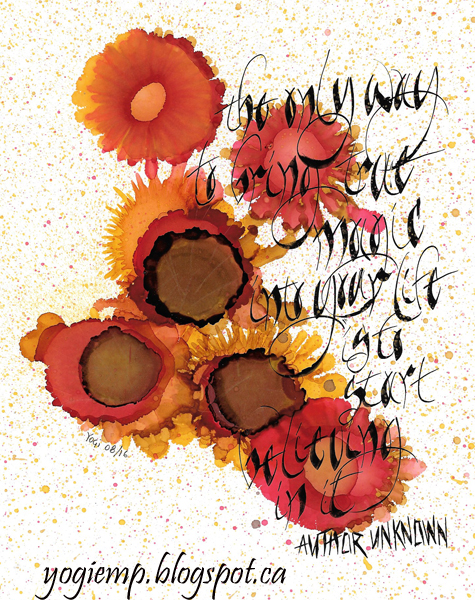 the only way
to bring true
magic
into your life
is to
start
believing
in it
AUTHOR UNKNOWN
Yogi 08/16
yogiemp.blogspot.ca